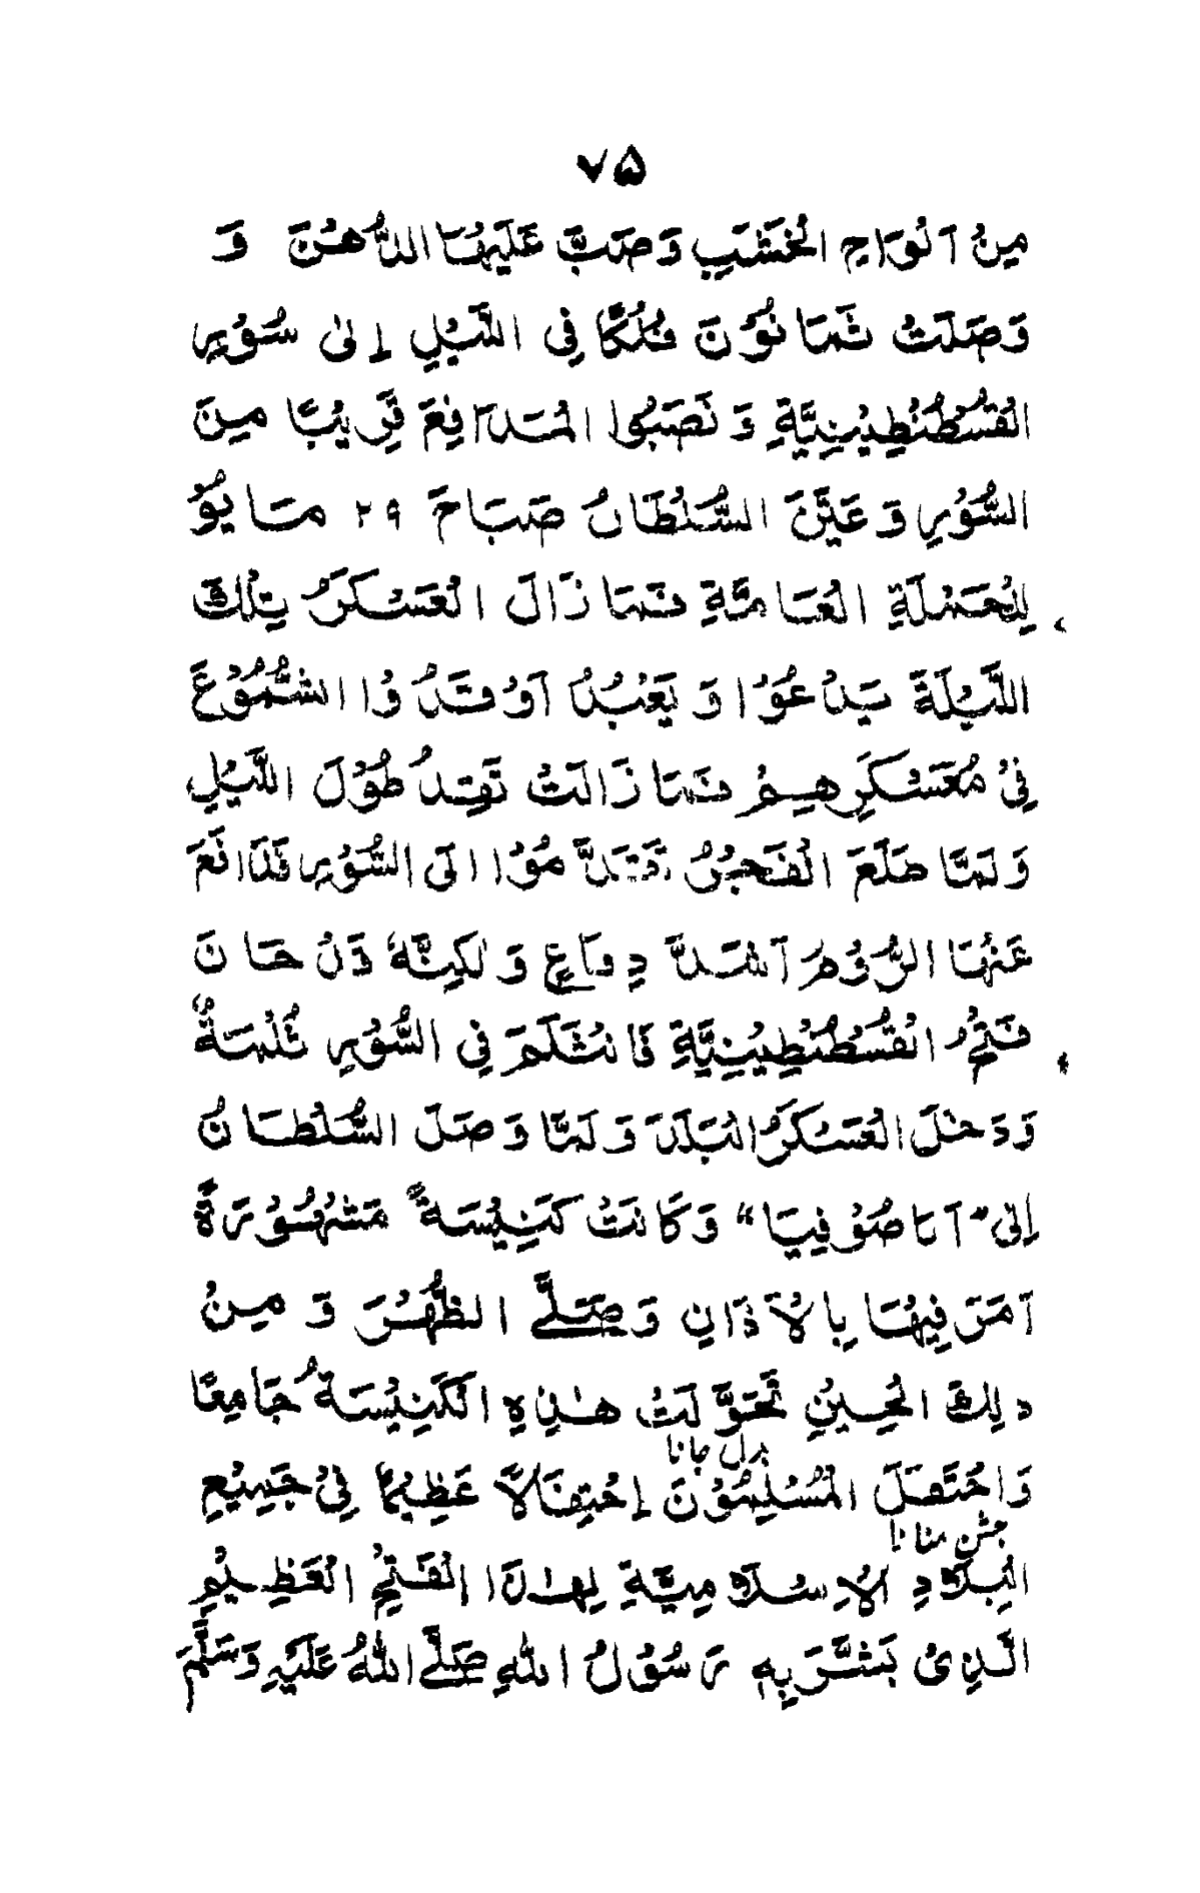 ۷۵
مِنْ اَلْوَاحِ الْخَشَبِ وَصَبَّ عَلَيْهَا الدُّهْنَ وَ
وَصَلَتْ ثَمَانُوْنَ فُلْكًا فِي اللَّيْلِ إِلىٰ سُوْرِ
الْقُسْطُنْطِيْنِيَّةِ وَنَصَبُوا الْمَدَافِعَ قَرِيْبًا مِنَ
السُّوْرِ وَعَيَّنَ السُّلْطَانُ صَبَاحَ ۲۹ مَايُوْ
لِلْحَمْلَةِ الْعَامَّةِ فَمَا زَالَ الْعَسْكَرُ تِلْكَ
اللَّيْلَةَ يَدْعُوْا وَيَعْبُدُ اَوْقَدُوا الشُّمُوْعَ
فِيْ مُعَسْكَرِهِمْ فَمَا زَالَتْ تَقِدُ طُوْلَ اللَّيْلِ
وَلَمَّا طَلَعَ الْفَجْرُ تَقَدَّمُوْا الَى السُّوْرِ فَدَافَعَ
عَنْهَا الرُّوْمُ اَشَدَّ دِفَاعٍ وَلٰكِنَّهٗ دَنْ حَانَ
فَتْحُ الْقُسْطُنْطِيْنِيَّةِ فَانْثَلَمَ فِي السُّوْرِ ثُلْمَةٌ
وَدَخَلَ الْعَسْكَرُ الْبَلَدَ وَلَمَّا وَصَلَ السُّلْطَانُ
إِلىٰ "اَيَا صُوْفِيَا" وَكَانَتْ كَنِيْسَةً مَشْهُوْرَةً
اَمَرَ فِيْهَا بِالْاَذَانِ وَصَلَّى الظُّهْرَ وَمِنْ
ذلِكَ الْحِيْنِ تَحَوَّلَتْ هٰذِهِ الْكَنِيْسَةُ جَامِعًا
بدل جانا
وَاحْتَفَلَ الْمُسْلِمُوْنَ إِحْتِفَالًا عَظِيْمًا فِيْ جَمِيْعِ
جشن منانا
الْبِلَادِ الْاِسْلَامِيَّةِ لِهٰذَا الْفَتْحِ الْعَظِيْمِ
الَّذِيْ بَشَّرَ بِهٖ رَسُوْلُ اللهِ صَلَّى اللهُ عَلَيْهِ وَسَلَّمَ